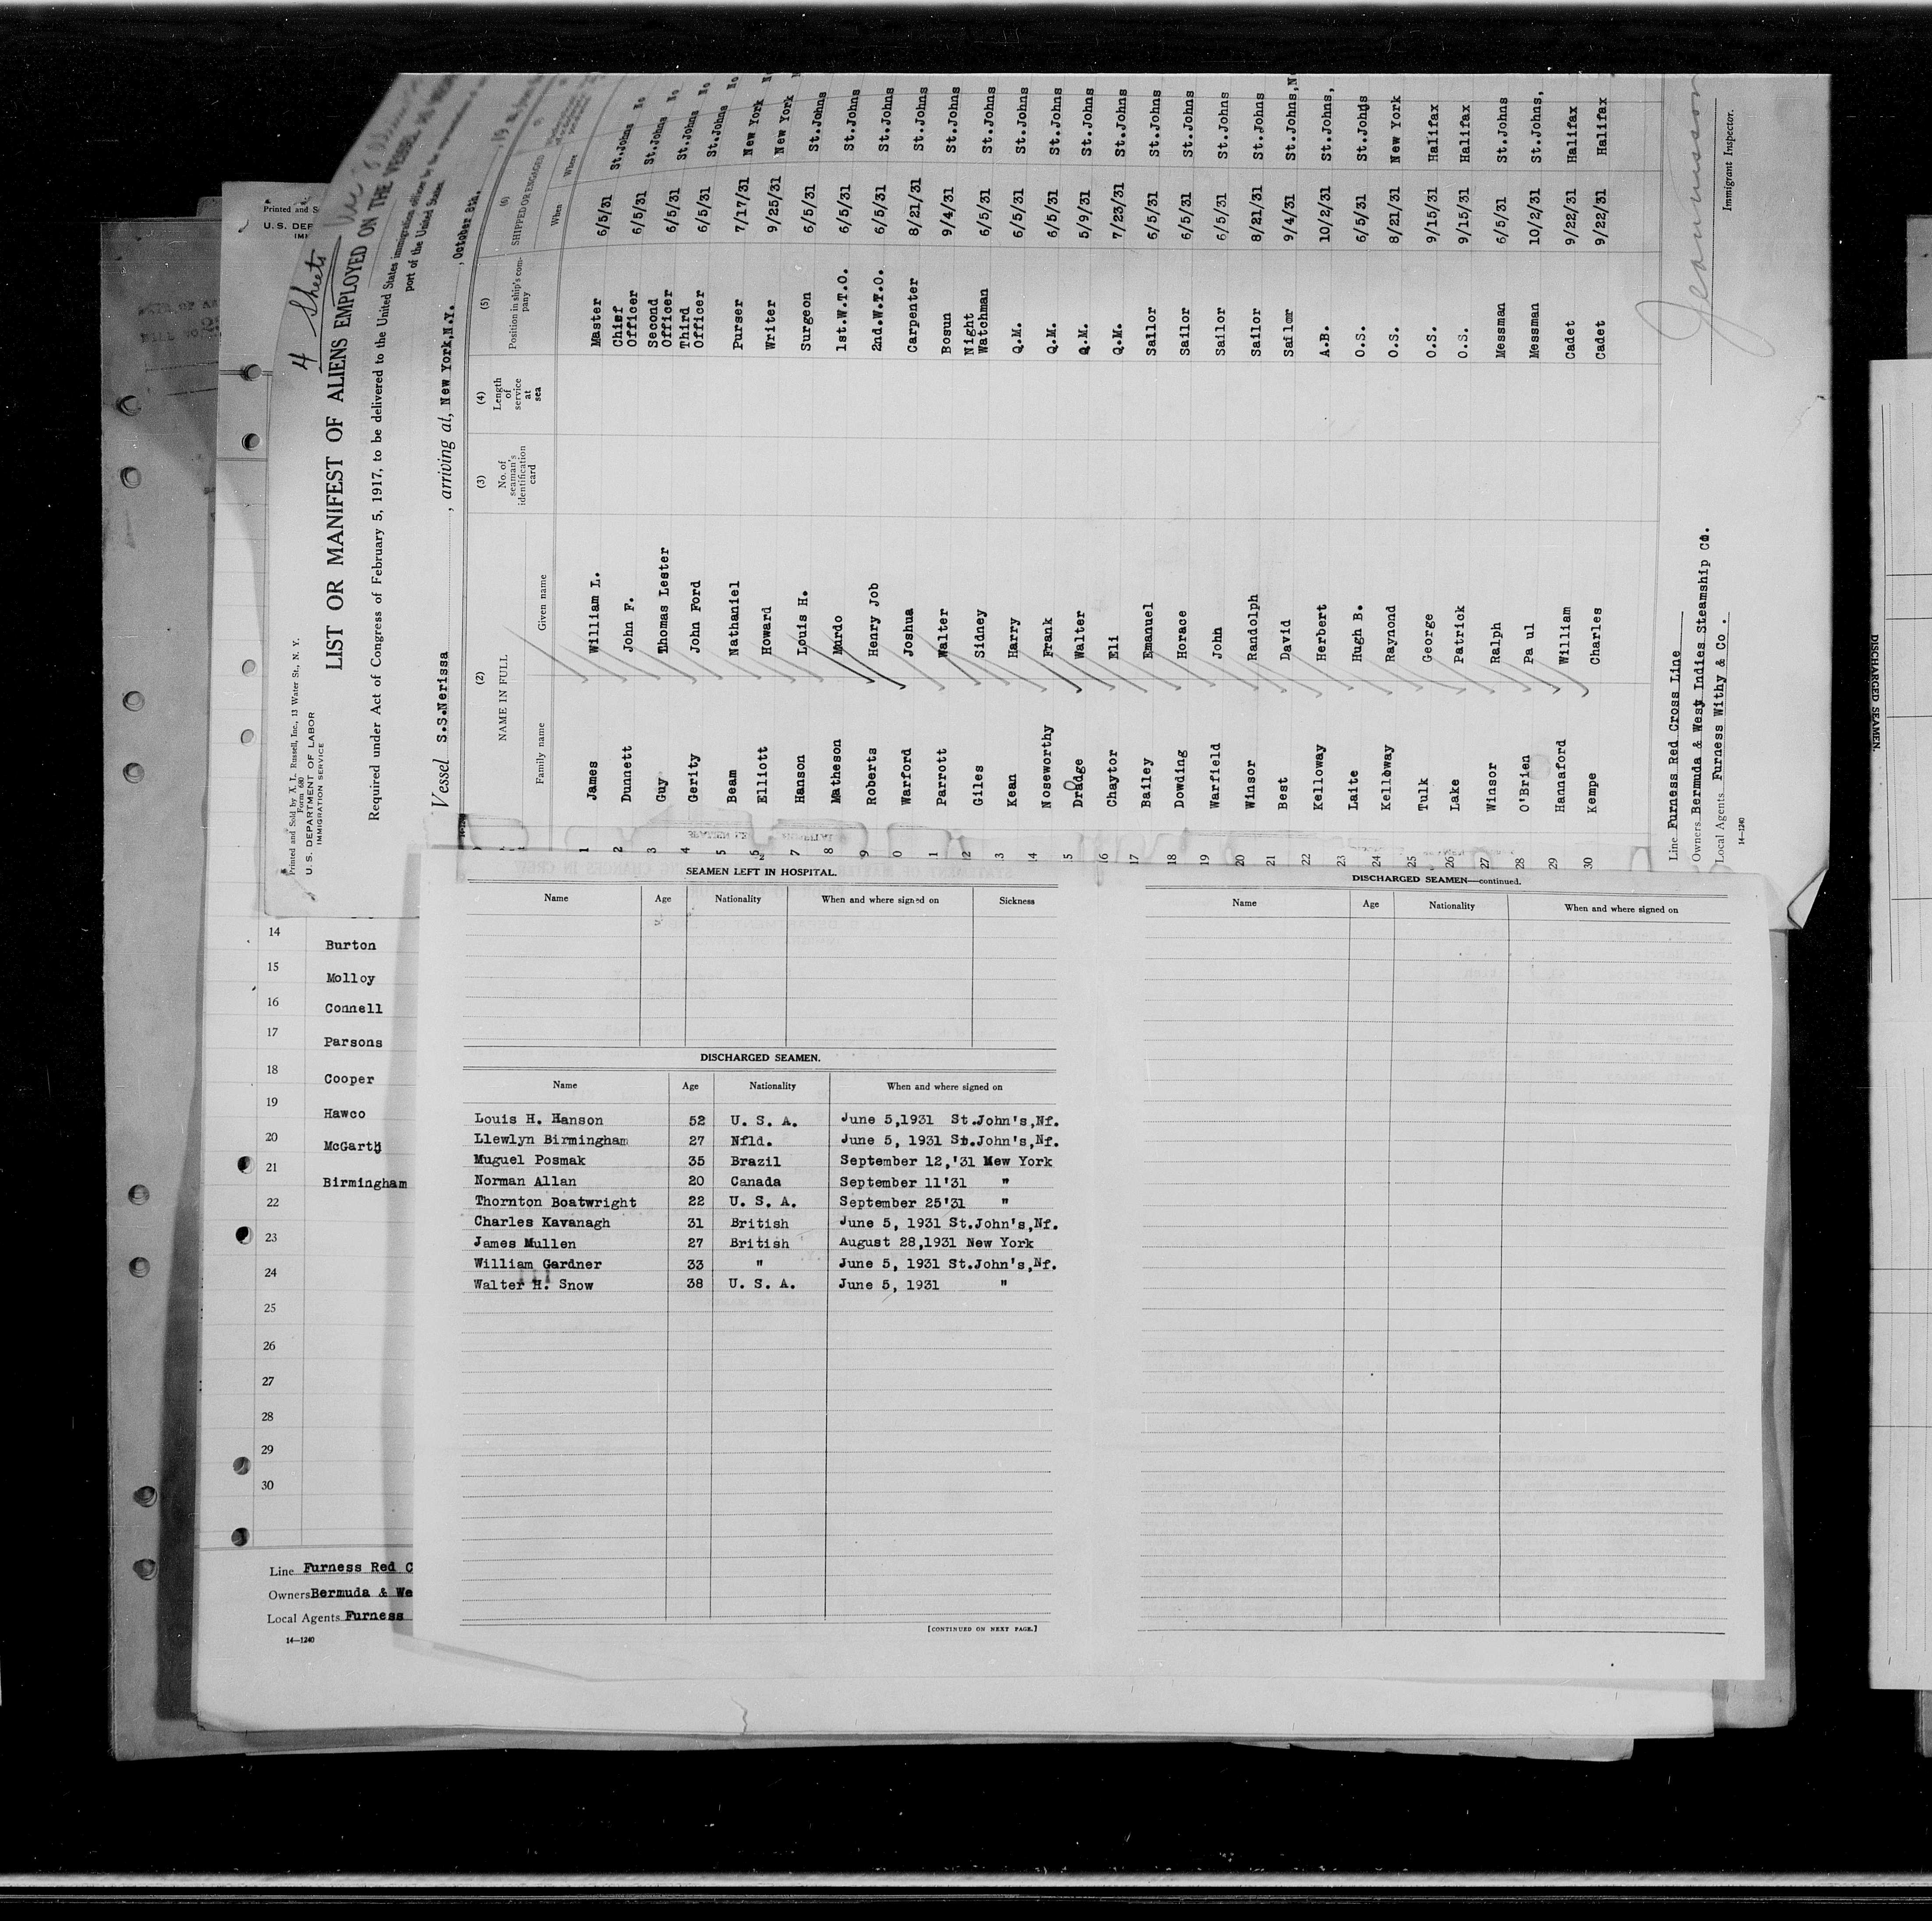 4 Sheets
Printed and Sold by A. L. Russell, Inc., 13 Water St., N. Y.
Form 680
U. S. DEPARTMENT OF LABOR
IMMIGRATION SERVICE
LIST OR MANIFEST OF ALIENS EMPLOYED ON THE VESSEL
Required under Act of Congress of February 5, 1917, to be delivered to the United States immigration officer by the
port of the United States
Vessel S.S.Nerissa , arriving at, New York,N.Y. , October 8th.
(2) (3) (4) (5) (6)
NAME IN FULL No. of seaman's identification card Length of service at sea Position in ship's company SHIPPED OR ENGAGED
Family name Given name When Where
1 James William L. Master 6/5/31 St.Johns
2 Dunnett John F. Chief Officer 6/5/31 St.Johns
3 Guy Thomas Lester Second Officer 6/5/31 St.Johns
4 Gerity John Ford Third Officer 6/5/31 St.Johns
5 Beam Nathaniel Purser 7/17/31 New York
6 Elliott Howard Writer 9/25/31 New York
7 Hanson Louis H. Surgeon 6/5/31 St.Johns
8 Matheson Murdo 1st.W.T.O. 6/5/31 St.Johns
9 Roberts Henry Job 2nd.W.T.O. 6/5/31 St.Johns
0 Warford Joshua Carpenter 8/21/31 St.Johns
1 Parrott Walter Bosun 9/4/31 St.Johns
12 Giles Sidney Night Watchman 6/5/31 St.Johns
3 Kean Harry Q.M. 6/5/31 St.Johns
14 Noseworthy Frank Q.M. 6/5/31 St.Johns
5 Dradge Walter Q.M. 5/9/31 St.Johns
16 Chaytor Eli Q.M. 7/23/31 St.Johns
17 Bailey Emanuel Sailor 6/5/31 St.Johns
18 Dowding Horace Sailor 6/5/31 St.Johns
19 Warfield John Sailor 6/5/31 St.Johns
20 Winsor Randolph Sailor 8/21/31 St.Johns
21 Best David Sailor 9/4/31 St.Johns,N
22 Kelloway Herbert A.B. 10/2/31 St.Johns,
23 Laite Hugh B. O.S. 6/5/31 St.Johns
24 Kelloway Raynond O.S. 8/21/31 New York
25 Tulk George O.S. 9/15/31 Halifax
26 Lake Patrick O.S. 9/15/31 Halifax
27 Winsor Ralph Messman 6/5/31 St.Johns
28 O'Brien Pa ul Messman 10/2/31 St.Johns,
29 Hannaford William Cadet 9/22/31 Halifax
30 Kempe Charles Cadet 9/22/31 Halifax
Line Furness Red Cross Line
Owners Bermuda & West Indies Steamship Co.
Local Agents Furness Withy & Co .
14—1240
Immigrant Inspector.
Printed and S
U. S. DEP
IMI
14 Burton
15 Molloy
16 Connell
17 Parsons
18 Cooper
19 Hawco
20 McGarty
21 Birmingham
22
23
24
25
26
27
28
29
30
Line Furness Red C
Owners Bermuda & We
Local Agents Furness
14—1240
SEAMEN LEFT IN HOSPITAL.
Name Age Nationality When and where signed on Sickness
DISCHARGED SEAMEN.
Name Age Nationality When and where signed on
Louis H. Hanson 52 U. S. A. June 5,1931 St.John's,Nf.
Llewlyn Birmingham 27 Nfld. June 5, 1931 St.John's,Nf.
Muguel Posmak 35 Brazil September 12,'31 New York
Norman Allan 20 Canada September 11'31 "
Thornton Boatwright 22 U. S. A. September 25'31 "
Charles Kavanagh 31 British June 5, 1931 St.John's,Nf.
James Mullen 27 British August 28,1931 New York
William Gardner 33 " June 5, 1931 St.John's,Nf.
Walter H. Snow 38 U. S. A. June 5, 1931 "
[CONTINUED ON NEXT PAGE.]
DISCHARGED SEAMEN—continued.
Name Age Nationality When and where signed on
DISCHARGED SEAMEN.